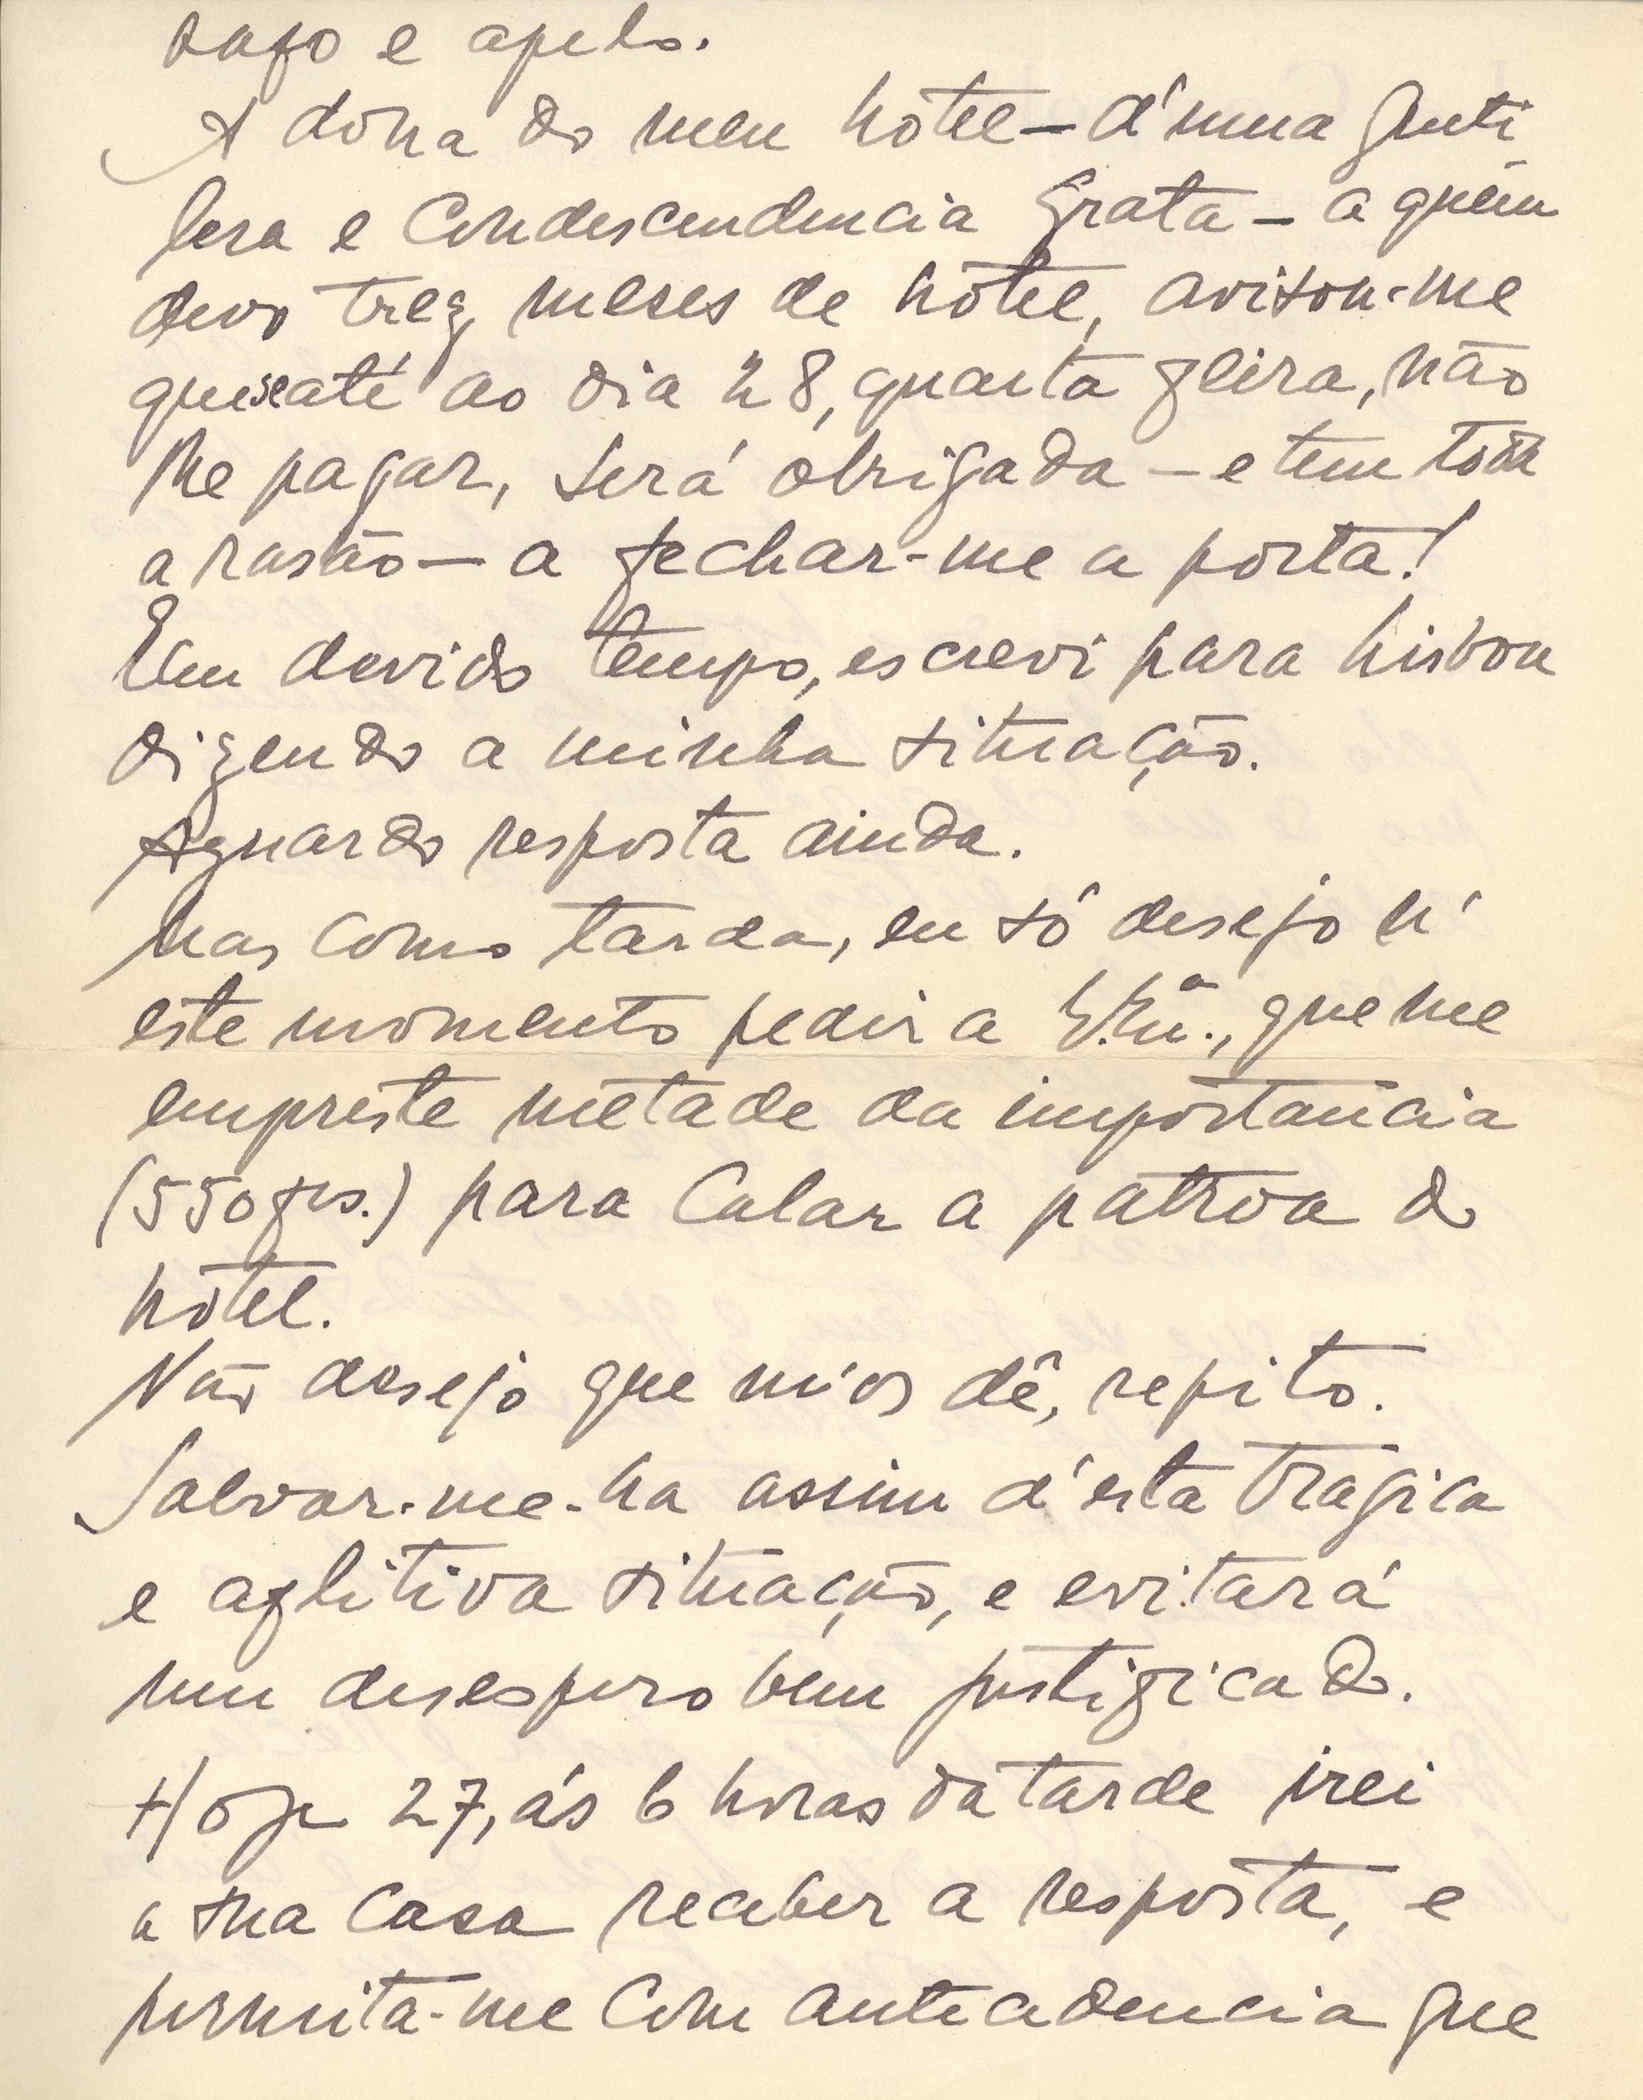 e apelo.
A dona do meu hotel – d'uma genti
lesa e condescendencia grata – a quem
devo trez meses de hotel, avisou-me
que se até ao dia 28, quarta feira, não
lhe pagar, será obrigada – e tem toda
a rasão – a fechar-me a porta!
Em devido tempo, escrevi para Lisboa
dizendo a minha situação.
Aguardo resposta ainda.
Mas como tarda, eu só desejo n'
este momento pedir a V. Exª., que me
empreste metade da importancia
(550 frs.) para calar a patroa do
hotel.
Não desejo que m'os dê, repito.
Salvar-me-ha assim d'esta tragica
e aflitiva situação, e evitará
um desespero bem justificado.
Hoje 27, ás 6 horas da tarde irei
a sua casa receber a resposta, e
permita-me com antecedencia que